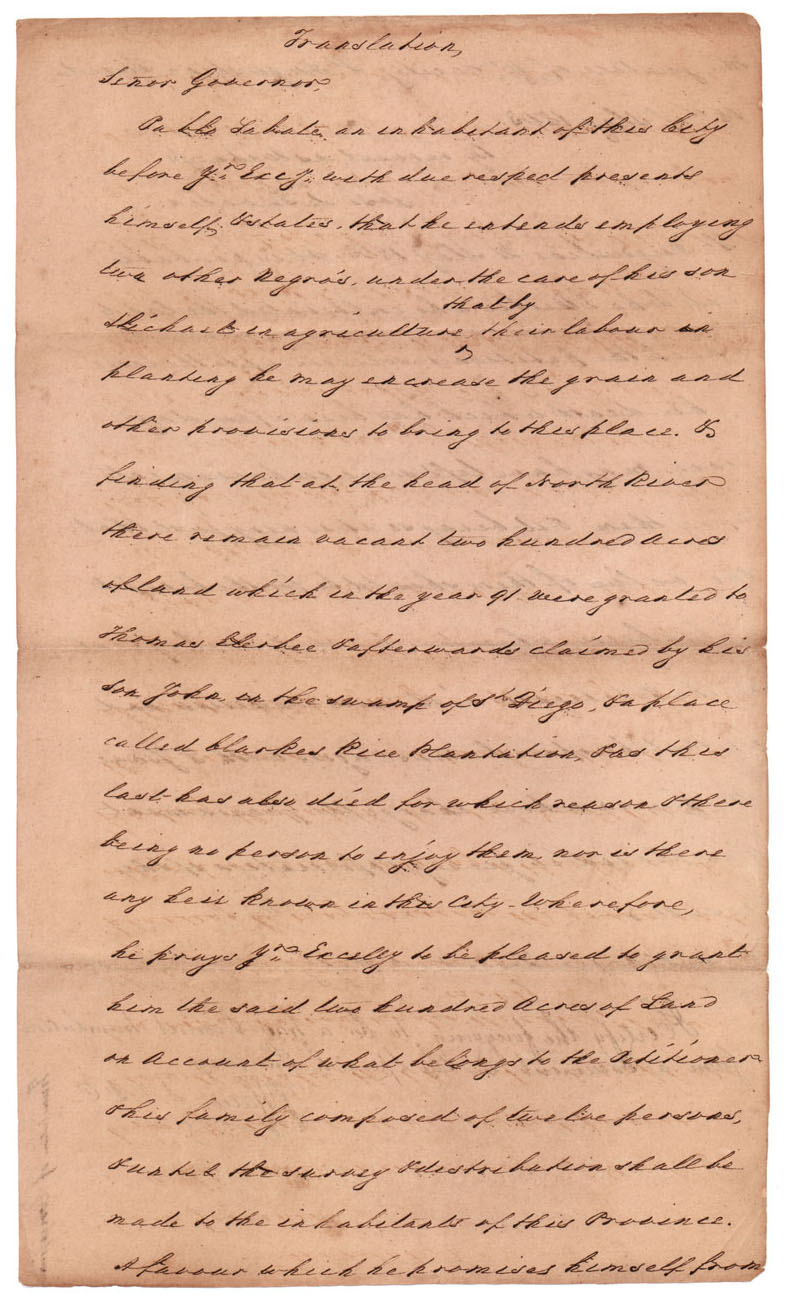 Translation,
Señor Governor,
Pablo Sabate an inhabitant of this City
before Yr. Excy. with due respect presents
himself, & states, that he intends employing
two other Negro's, under the care of his son
that by
Michael in agriculture, their labour in
planting he may increase the grain and
other provisions to bring to this place. &
finding that at the head of North River
there remain vacant two hundred Acres
of land which in the year 91 were granted to
Thomas Elerbee & afterwards claimed by his
son John, in the swamp of St. Diego, & a place
called Clarkes Rice Plantation, & as this
last has also died for which reason & there
being no person to enjoy them, nor is there
any heir known in this City. Wherefore,
he prays Yr. Excelly to be pleased to grant
him the said two hundred Acres of Land
on Account of what belongs to the Petitioner
& his family composed of twelve persons,
& until the survey & distribution shall be
made to the inhabitants of this Province.
A favour which he promises himself from